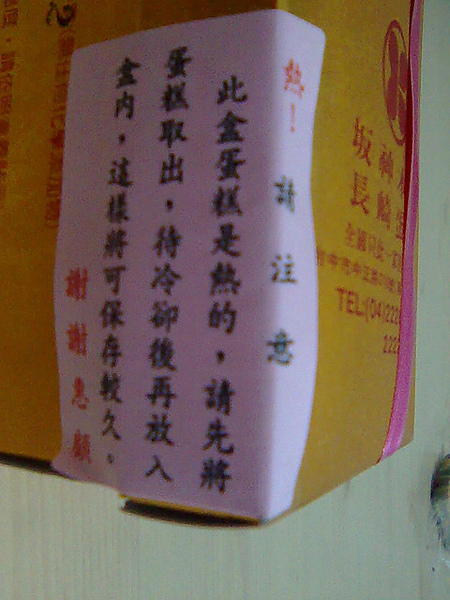 熱！請注意
此盒蛋糕是熱的，請先將
蛋糕取出，待冷卻後再放入
盒內，這樣將可保存較久。
謝謝惠顧
坂神
長崎
全國只此一家
TEL:(04)222